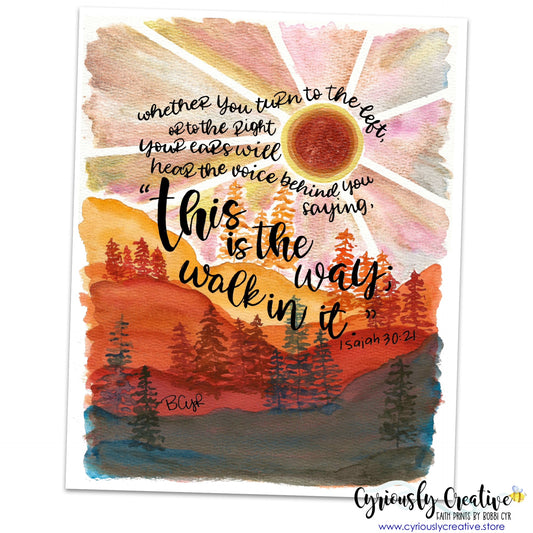 whether you turn to the left,
or to the right
your ears will
hear the voice behind you
saying,
"this
is the way;
walk in it."
Isaiah 30:21
BCyR
Cyriously Creative
FAITH PRINTS BY BOBBI CYR
www.cyriouslycreative.store